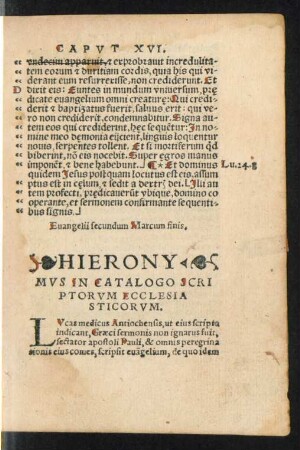 CAPVT XVI.
undecim apparuit, & exprobravit incredulita-
tem eorum & duritiam cordis, quia his qui vi-
derant eum resurrexisse, non crediderunt. Et
Dixit eis: Euntes in mundum vniuersum, præ
dicate euangelium omni creaturę: Qui credide
rit & baptizatus fuerit, saluus erit: qui ve-
ro non crediderit, condemnabitur. Signa au-
tem eos qui crediderint, hęc sequẽtur: In no-
mine meo demonia eijcent, linguis loquentur
nouis, serpentes tollent. Et si mortiferum qd
biberint, nõ eis nocebit. Super egros manus
imponẽt, & bene habebunt. ¶ * Et dominus
Lu.24.g
quidem Iesus postquam locutus est eis, assum
ptus est in cęlum, & sedit a dextr, dei. Illi au
tem profecti, prędicauerũt vbique, domino co
operante, et sermonem confirmante sequenti-
bus signis.
Euangelii secundum Marcum finis.
HIERONY
MVS IN CATALOGO SCRI
PTORVM ECCLESIA
STICORVM.
LVcas medicus Antiochensis, ut eius scripta
indicant, Græci sermonis non ignarus fuit,
sectator apostoli Pauli, & omnis peregrina
tionis eius comes, scripsit euãgelium, de quo idem